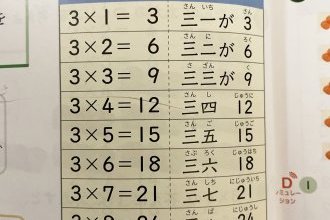 を
3×1= 3 三一が 3
さん いち さん
3×2= 6 三二が 6
さん に ろく
3×3= 9 三三が 9
さ ざん く
3×4=12 三四 12
さん し じゅうに
3×5=15 三五 15
さん ご じゅうご
3×6=18 三六 18
さぶ ろく じゅうはち
3×7=21 三七 21
さん しち にじゅういち
D 1
ノミュレー
ション